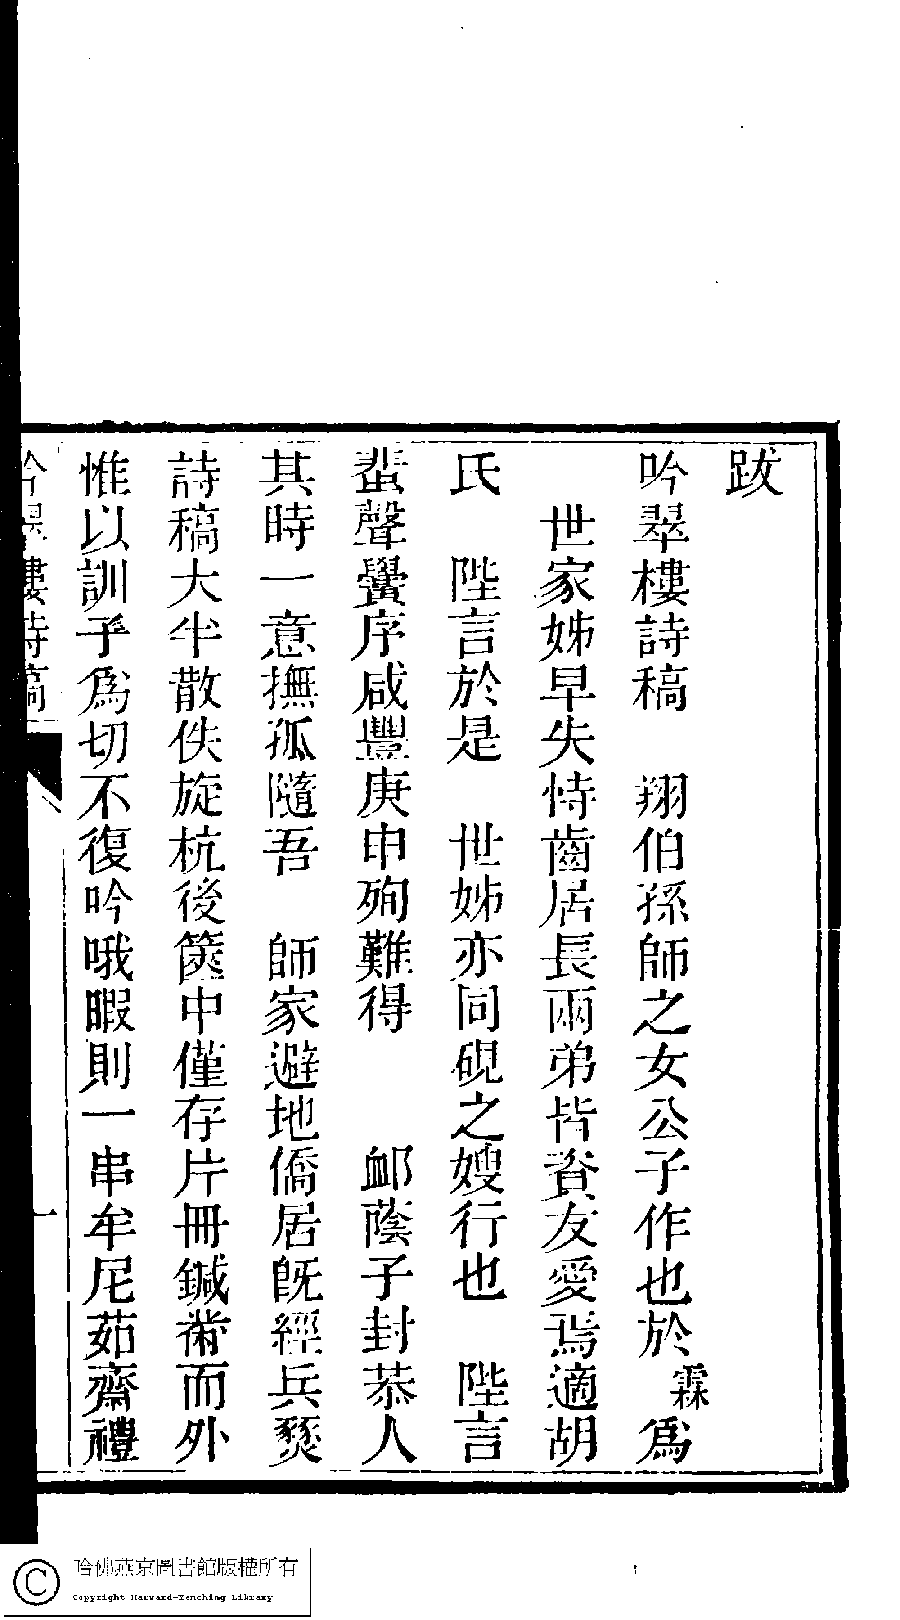 跋
吟翠樓詩稿　翔伯孫師之女公子作也於霖爲
世家姊早失恃齒居長兩弟皆資友愛焉適胡
氏　陛言於是　世姊亦同硯之嫂行也　陛言
蜚聲黌序咸豐庚申殉難得　　䘏蔭子封恭人
其時一意撫孤隨吾　師家避地僑居旣經兵燹
詩稿大半散佚旋杭後篋中僅存片冊鍼黹而外
惟以訓子爲切不復吟哦暇則一串牟尼茹齋禮
吟翠樓詩稿
一
哈佛燕京圖書館版權所有
Copyright Harvard-Yenching Library